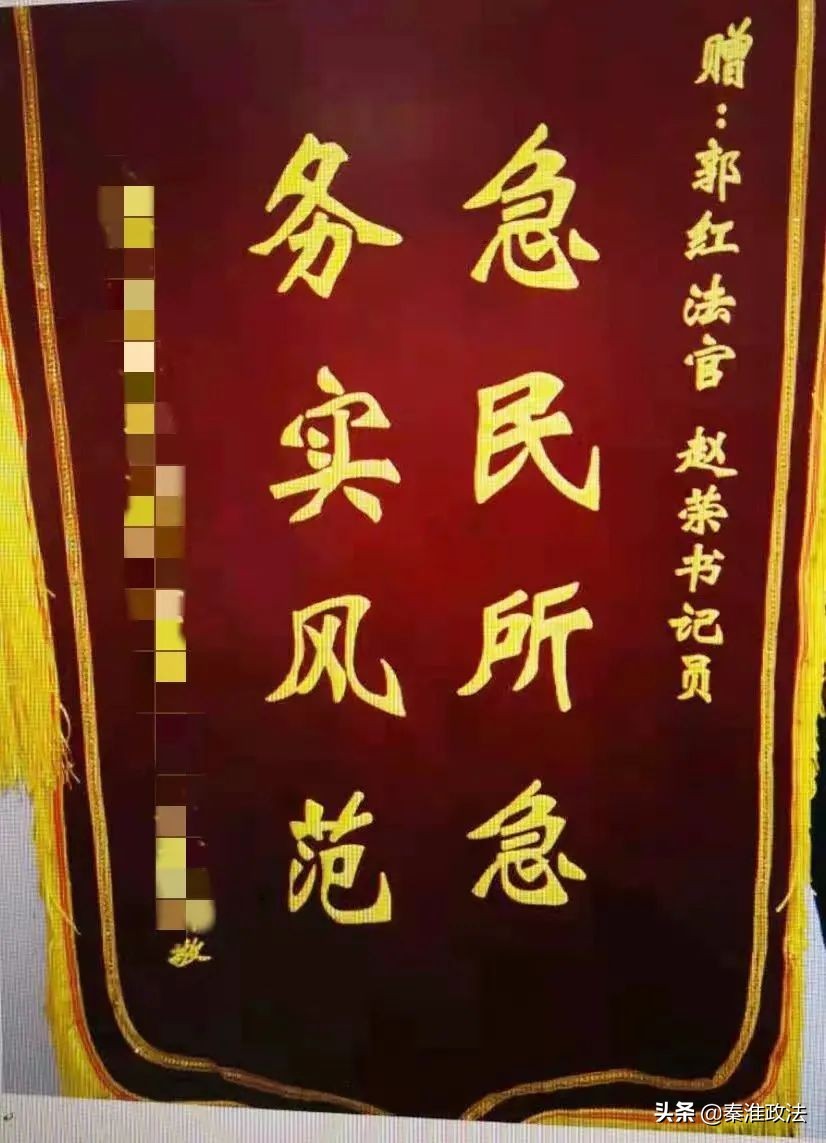 赠：郭红法官 赵荣书记员
急民所急
务实风范
敬
头条 @秦淮政法